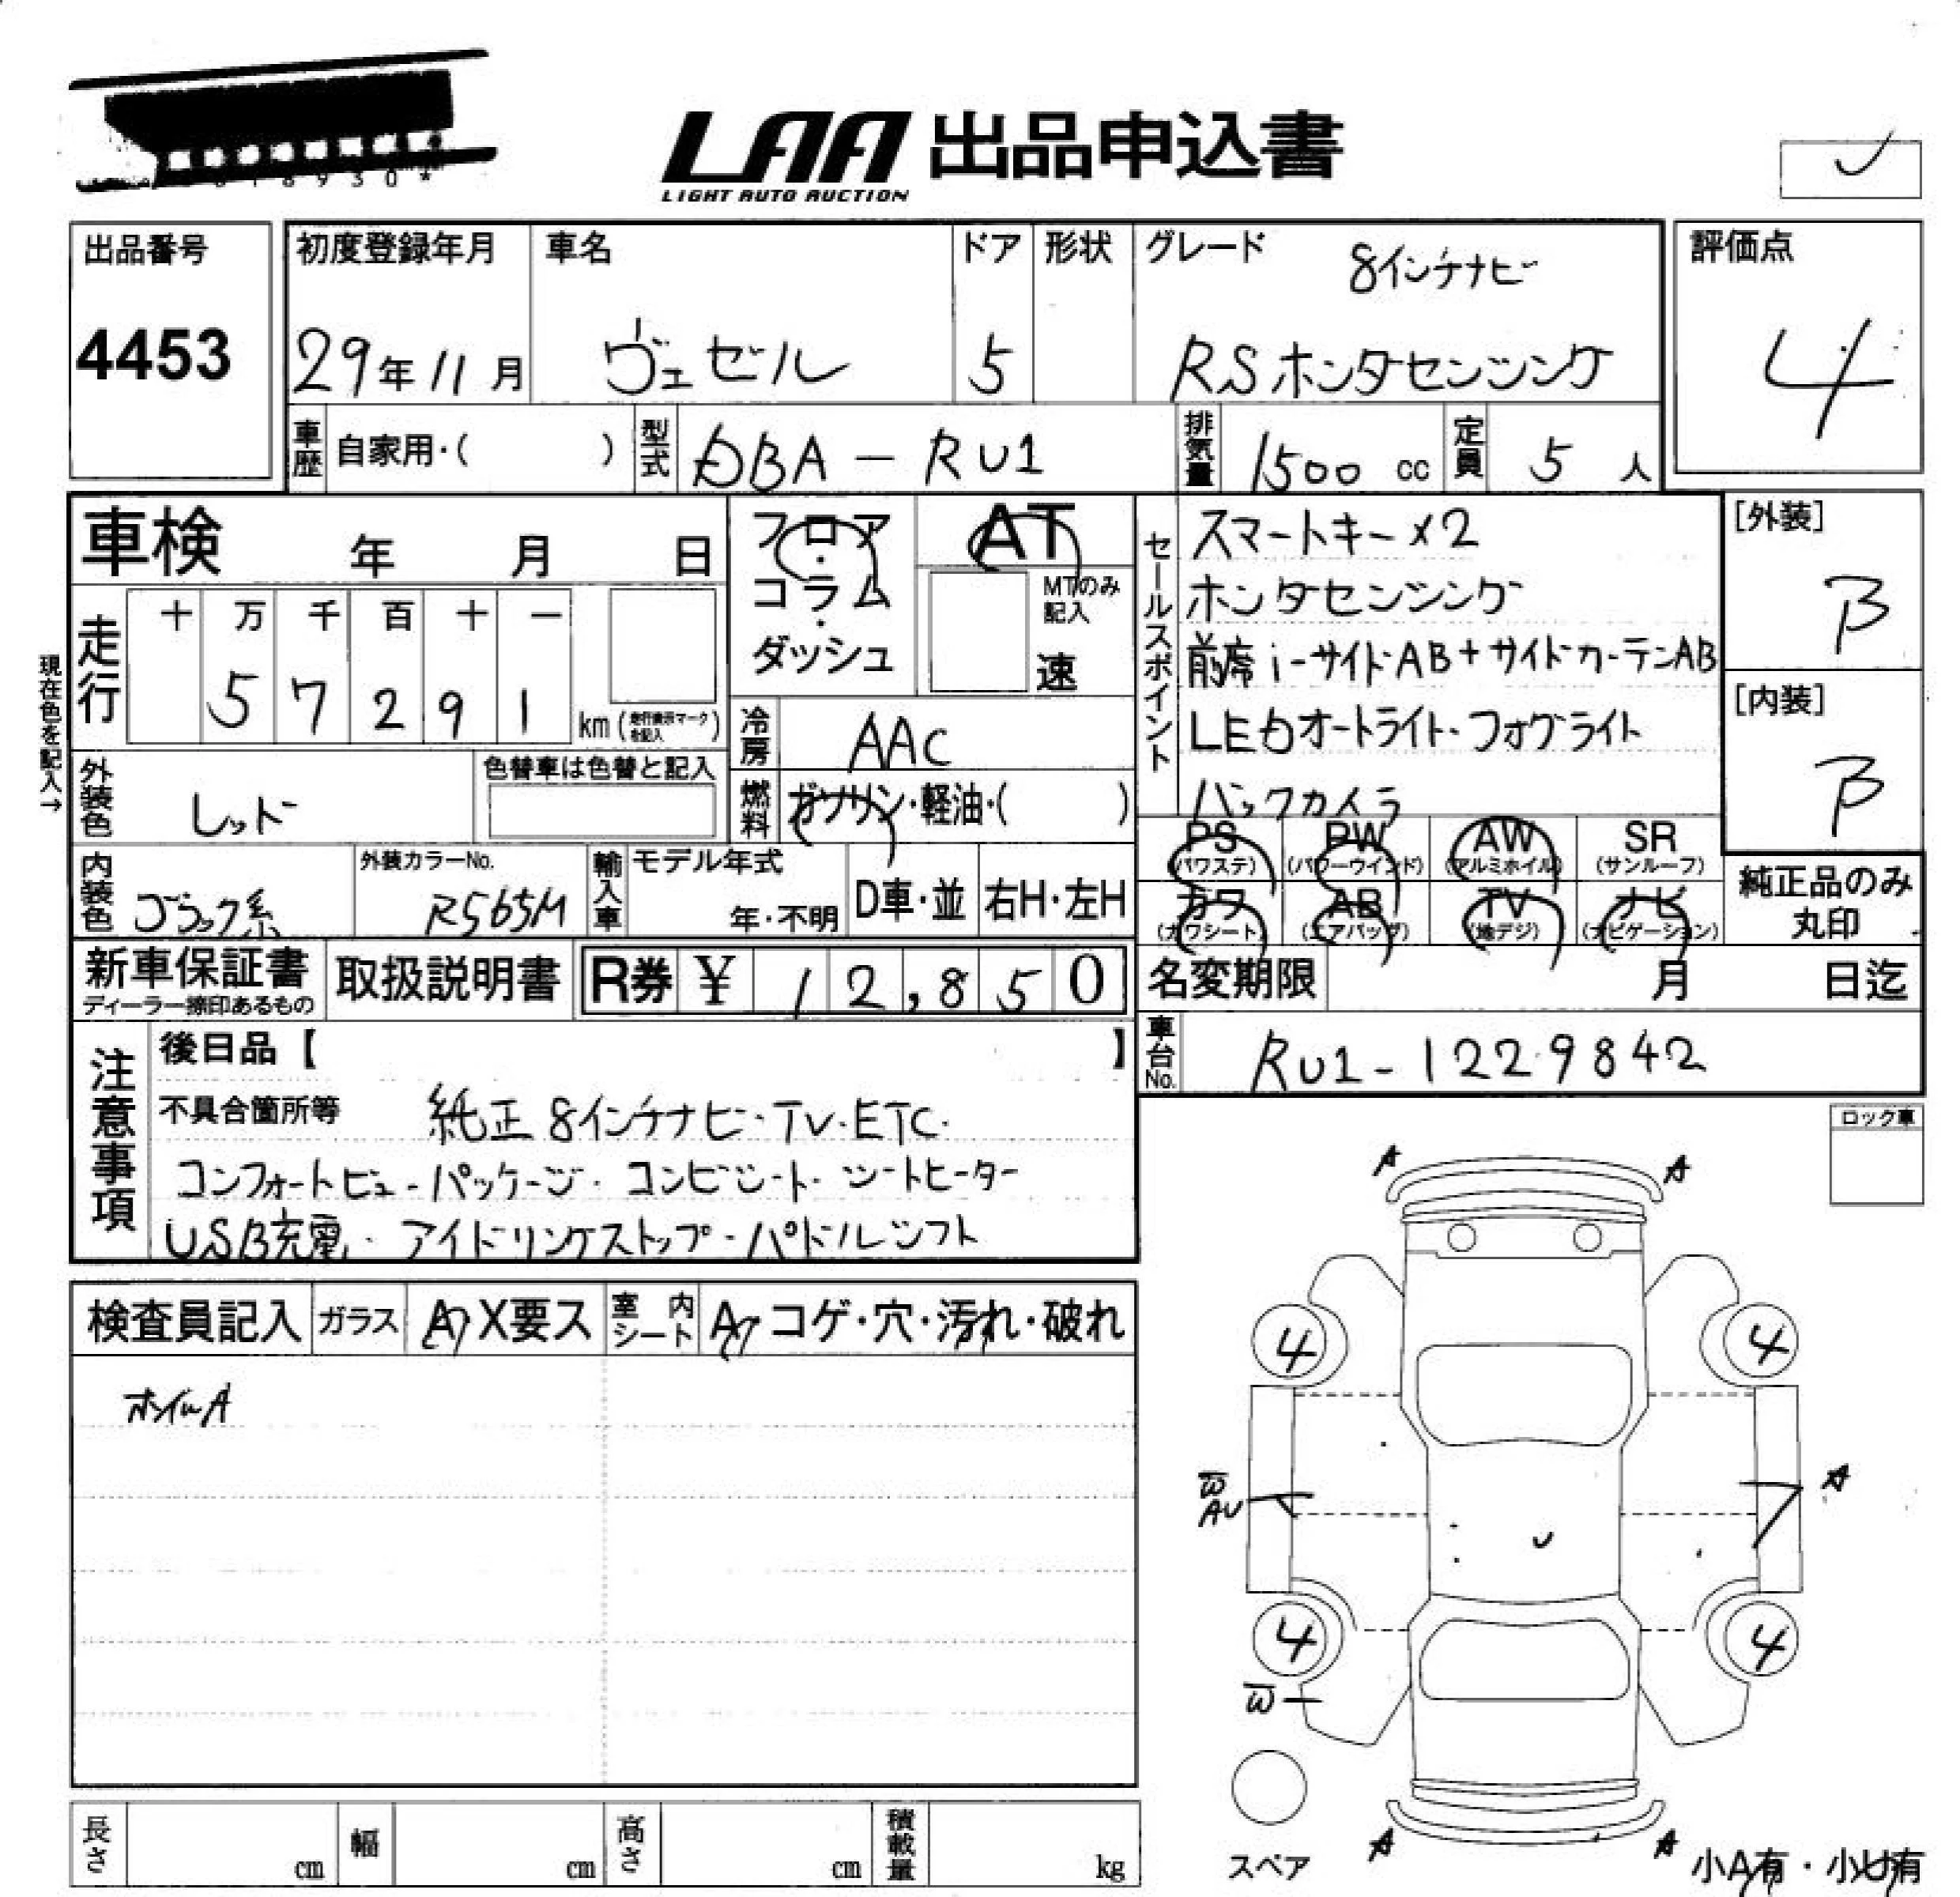 LAA 出品申込書
LIGHT AUTO AUCTION
出品番号
4453
初度登録年月
29年11月
車名
ヴェゼル
ドア
5
形状
グレード
8インチナビ
RSホンダセンシング
評価点
4
車歴 自家用・( )
型式 DBA-RU1
排気量 1500 cc
定員 5 人
車検 年 月 日
フロア・コラム・ダッシュ
AT
MTのみ記入
速
現在色を記入→
走行
十 万 千 百 十 一
5 7 2 9 1
km (走行表示マークを記入)
冷房 AAC
外装色 レッド
色替車は色替と記入
燃料 ガソリン・軽油・( )
内装色 ブラック系
外装カラーNo.
R565M
輸入車 モデル年式
年・不明
D車・並
右H・左H
セールスポイント
スマートキー×2
ホンダセンシング
前席i-サイドAB+サイドカーテンAB
LEDオートライト・フォグライト
バックカメラ
[外装]
B
[内装]
B
PS (パワステ) PW (パワーウインド) AW (アルミホイル) SR (サンルーフ)
カワ (カワシート) AB (エアバッグ) TV (地デジ) ナビ (ナビゲーション)
純正品のみ丸印
新車保証書
ディーラー捺印あるもの
取扱説明書
R券 ¥ 12,850
名変期限 月 日迄
車台No. RU1-1229842
注意事項
後日品【 】
不具合箇所等 純正8インチナビ・TV・ETC・
コンフォートビュー・パッケージ・コンビシート・シートヒーター
USB充電・アイドリングストップ・パドルシフト
ロック車
検査員記入
ガラス A X要ス
室内シート A コゲ・穴・汚れ・破れ
ホイルA
A A
4 4
W
AU
A
U
4 4
W
A A
スペア
小A有・小U有
長さ cm
幅 cm
高さ cm
積載量 kg